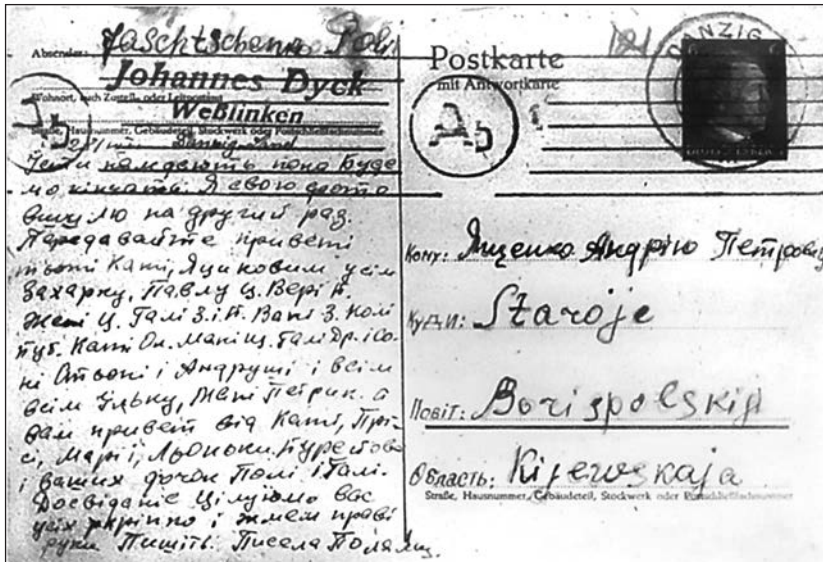 Absender: Jaschtschenko Poli
Johannes Dyck
Wohnort, auch Zustell- oder Leitpostamt
Weßlinken
Straße, Hausnummer, Gebäudeteil, Stockwerk oder Postschließfachnummer
Danzig Land
пока буде
мо кінчати. Я свою фото
вишлю на другий раз.
Передавайте привет
тьоті Каті, Яциковим усім
Захарку, Павлу Ц. Вері К.
Жені Ц. Галі З. і Н. Вані З. Колі
Каті Ол. Галі Др. і Со
ні Андруші і всім
всім Ільку, Жені Петрик. а
вам привет від Каті, Прі
сі, Марії, Льоньки
і ваших дочок Полі і Галі.
Досвіданіє Цілуємо вас
усіх кріпко і жмем праві
руки Пишіть. Писала Поля Ящ.
Postkarte
mit Antwortkarte
DANZIG
Ab
Кому: Ященко Андрію Петровичу
Куди: Staroje
Повіт: Borispolskij
Область: Kijewskaja
Straße, Hausnummer, Gebäudeteil, Stockwerk oder Postschließfachnummer